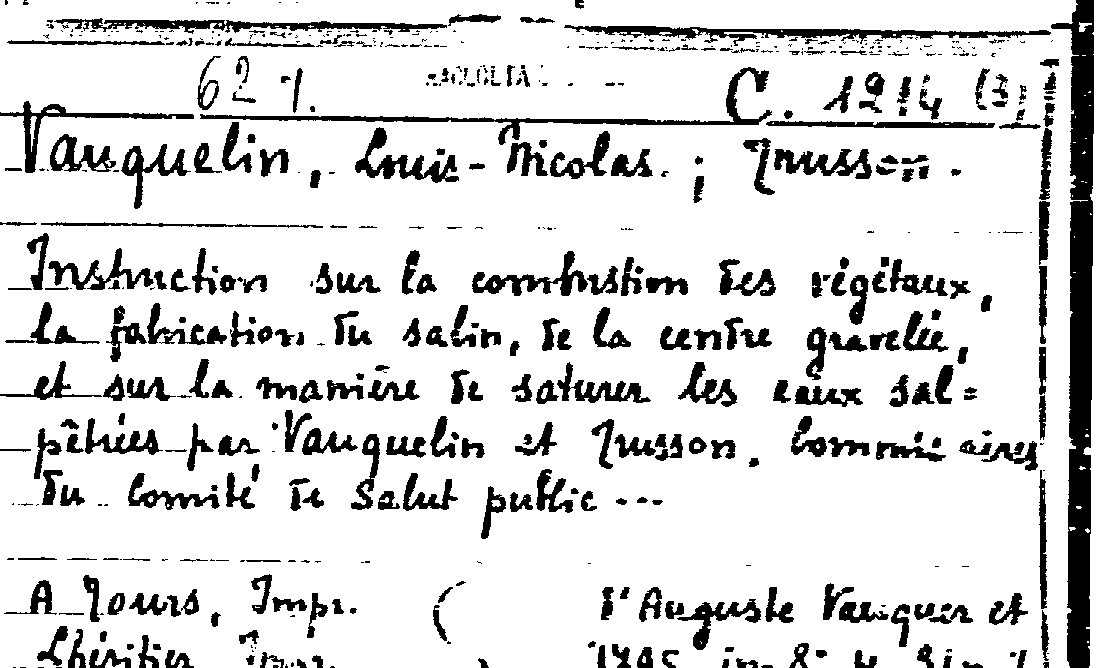 62 7. RACCOLTA C. 1214
Vauquelin, Louis-Nicolas. ; Trusson.
Instruction sur la combustion des végétaux,
la fabrication du salin, de la cendre gravelée,
et sur la manière de saturer les eaux sal=
pêtrées par Vauquelin et Trusson. Commissaires
du Comité de Salut public ---
A Tours, Impr. ( d'Auguste Vauquer et
Lhéritier Impr. 1795 in-8°